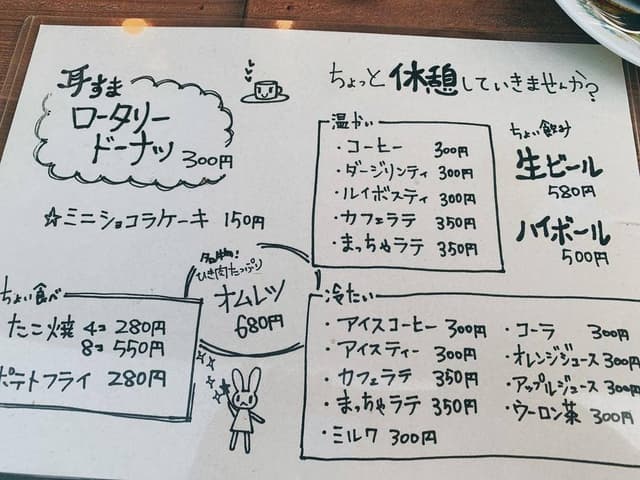 耳すま
ロータリー
ドーナツ 300円
☆ミニショコラケーキ 150円
ちょっと休憩していきませんか?
温かい
・コーヒー 300円
・ダージリンティ 300円
・ルイボスティ 300円
・カフェラテ 350円
・まっちゃラテ 350円
ちょい飲み
生ビール
580円
ハイボール
500円
名物!
ひき肉たっぷり
オムレツ
680円
ちょい食べ
たこ焼 4コ 280円
8コ 550円
ポテトフライ 280円
冷たい
・アイスコーヒー 300円
・アイスティー 300円
・カフェラテ 350円
・まっちゃラテ 350円
・ミルク 300円
・コーラ 300円
・オレンジジュース 300円
・アップルジュース 300円
・ウーロン茶 300円